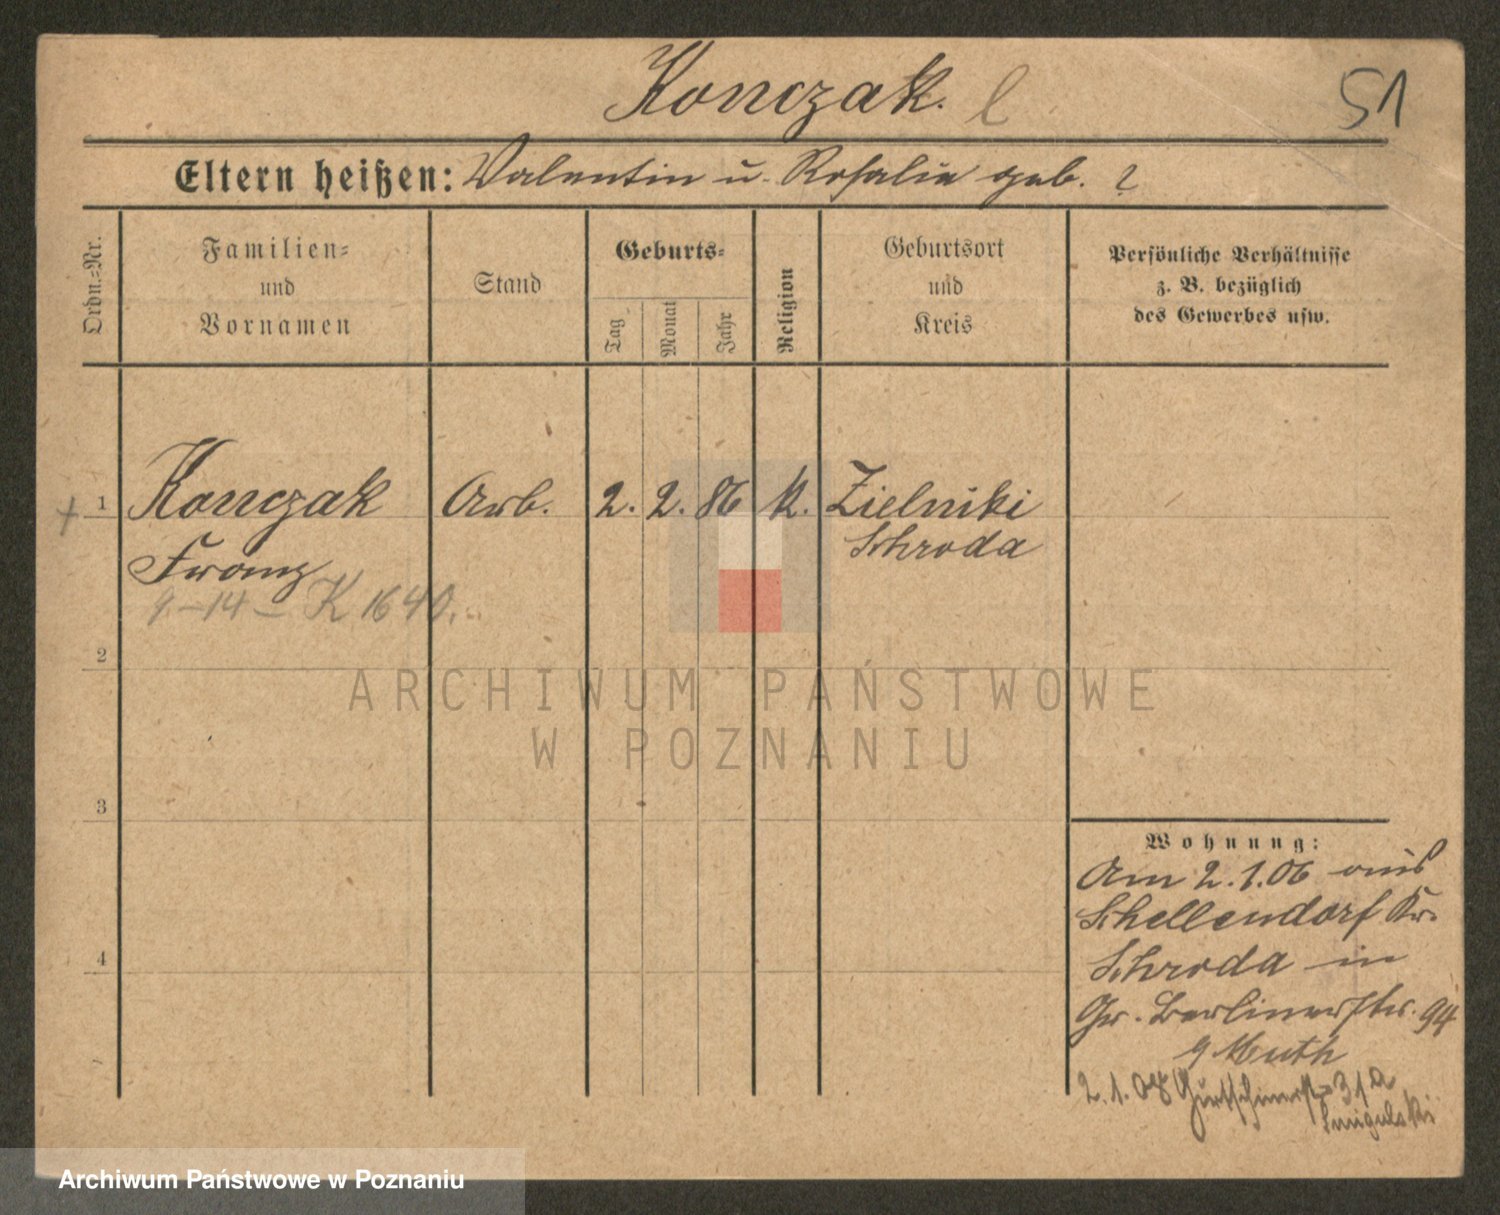 Konczak. l
51
Eltern heißen: Valentin u. Rosalie geb. ?
Ordn.-Nr.
Familien-
und
Vornamen
Stand
Geburts-
Tag
Monat
Jahr
Religion
Geburtsort
und
Kreis
Persönliche Verhältnisse
z. B. bezüglich
des Gewerbes usw.
+ 1 Konczak Arb. 2. 2. 86 K. Zielniki
Franz Schroda
9-14- K 1640.
2
3
4
ARCHIWUM PAŃSTWOWE
W POZNANIU
Wohnung:
Am 2.1.06 aus
Schellendorf Kr.
Schroda in
Gr. Berlinerstr. 94
b/ Muth
2.1.08 Gurtschinerstr 31a
Smigulski
Archiwum Państwowe w Poznaniu